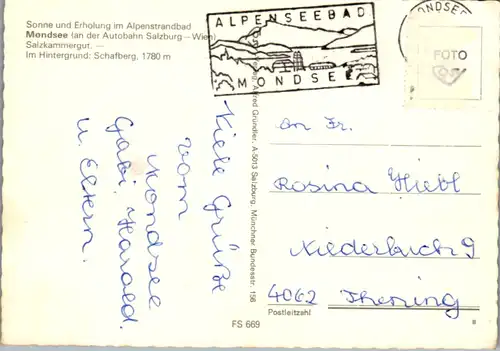 Sonne und Erholung im Alpenstrandbad
Mondsee (an der Autobahn Salzburg—Wien)
Salzkammergut. —
Im Hintergrund: Schafberg, 1780 m
ALPENSEEBAD
MONDSEE
MONDSEE
FOTO
Alfred Gründler, A-5013 Salzburg, Münchner Bundesstr. 158
Viele Grüße
vom
Mondsee
Gabi, Harald
u. Eltern.
An Fr.
Rosina Hiebl
Niederbuch 9
4062 Thening
Postleitzahl
FS 669